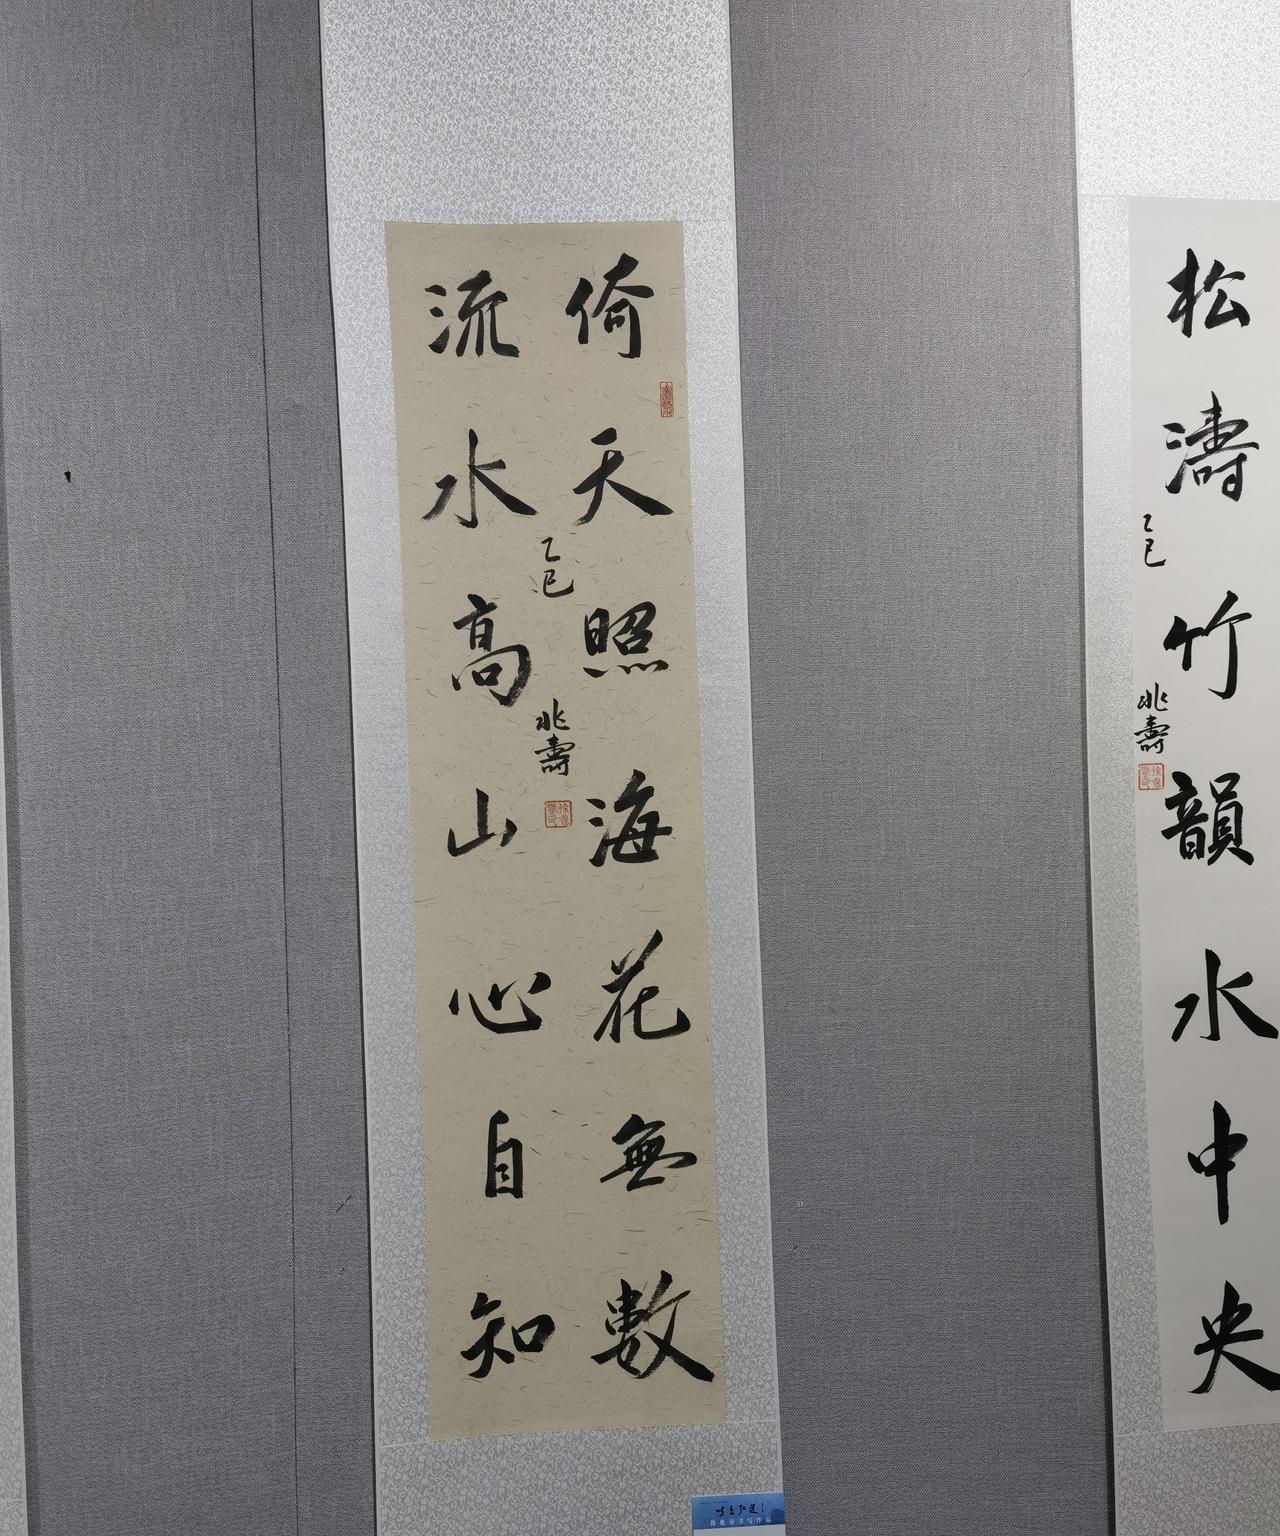 倚天照海花無數
流水高山心自知
乙巳
兆壽
松濤竹韻水中央
乙巳
兆壽
徐兆壽书写作品